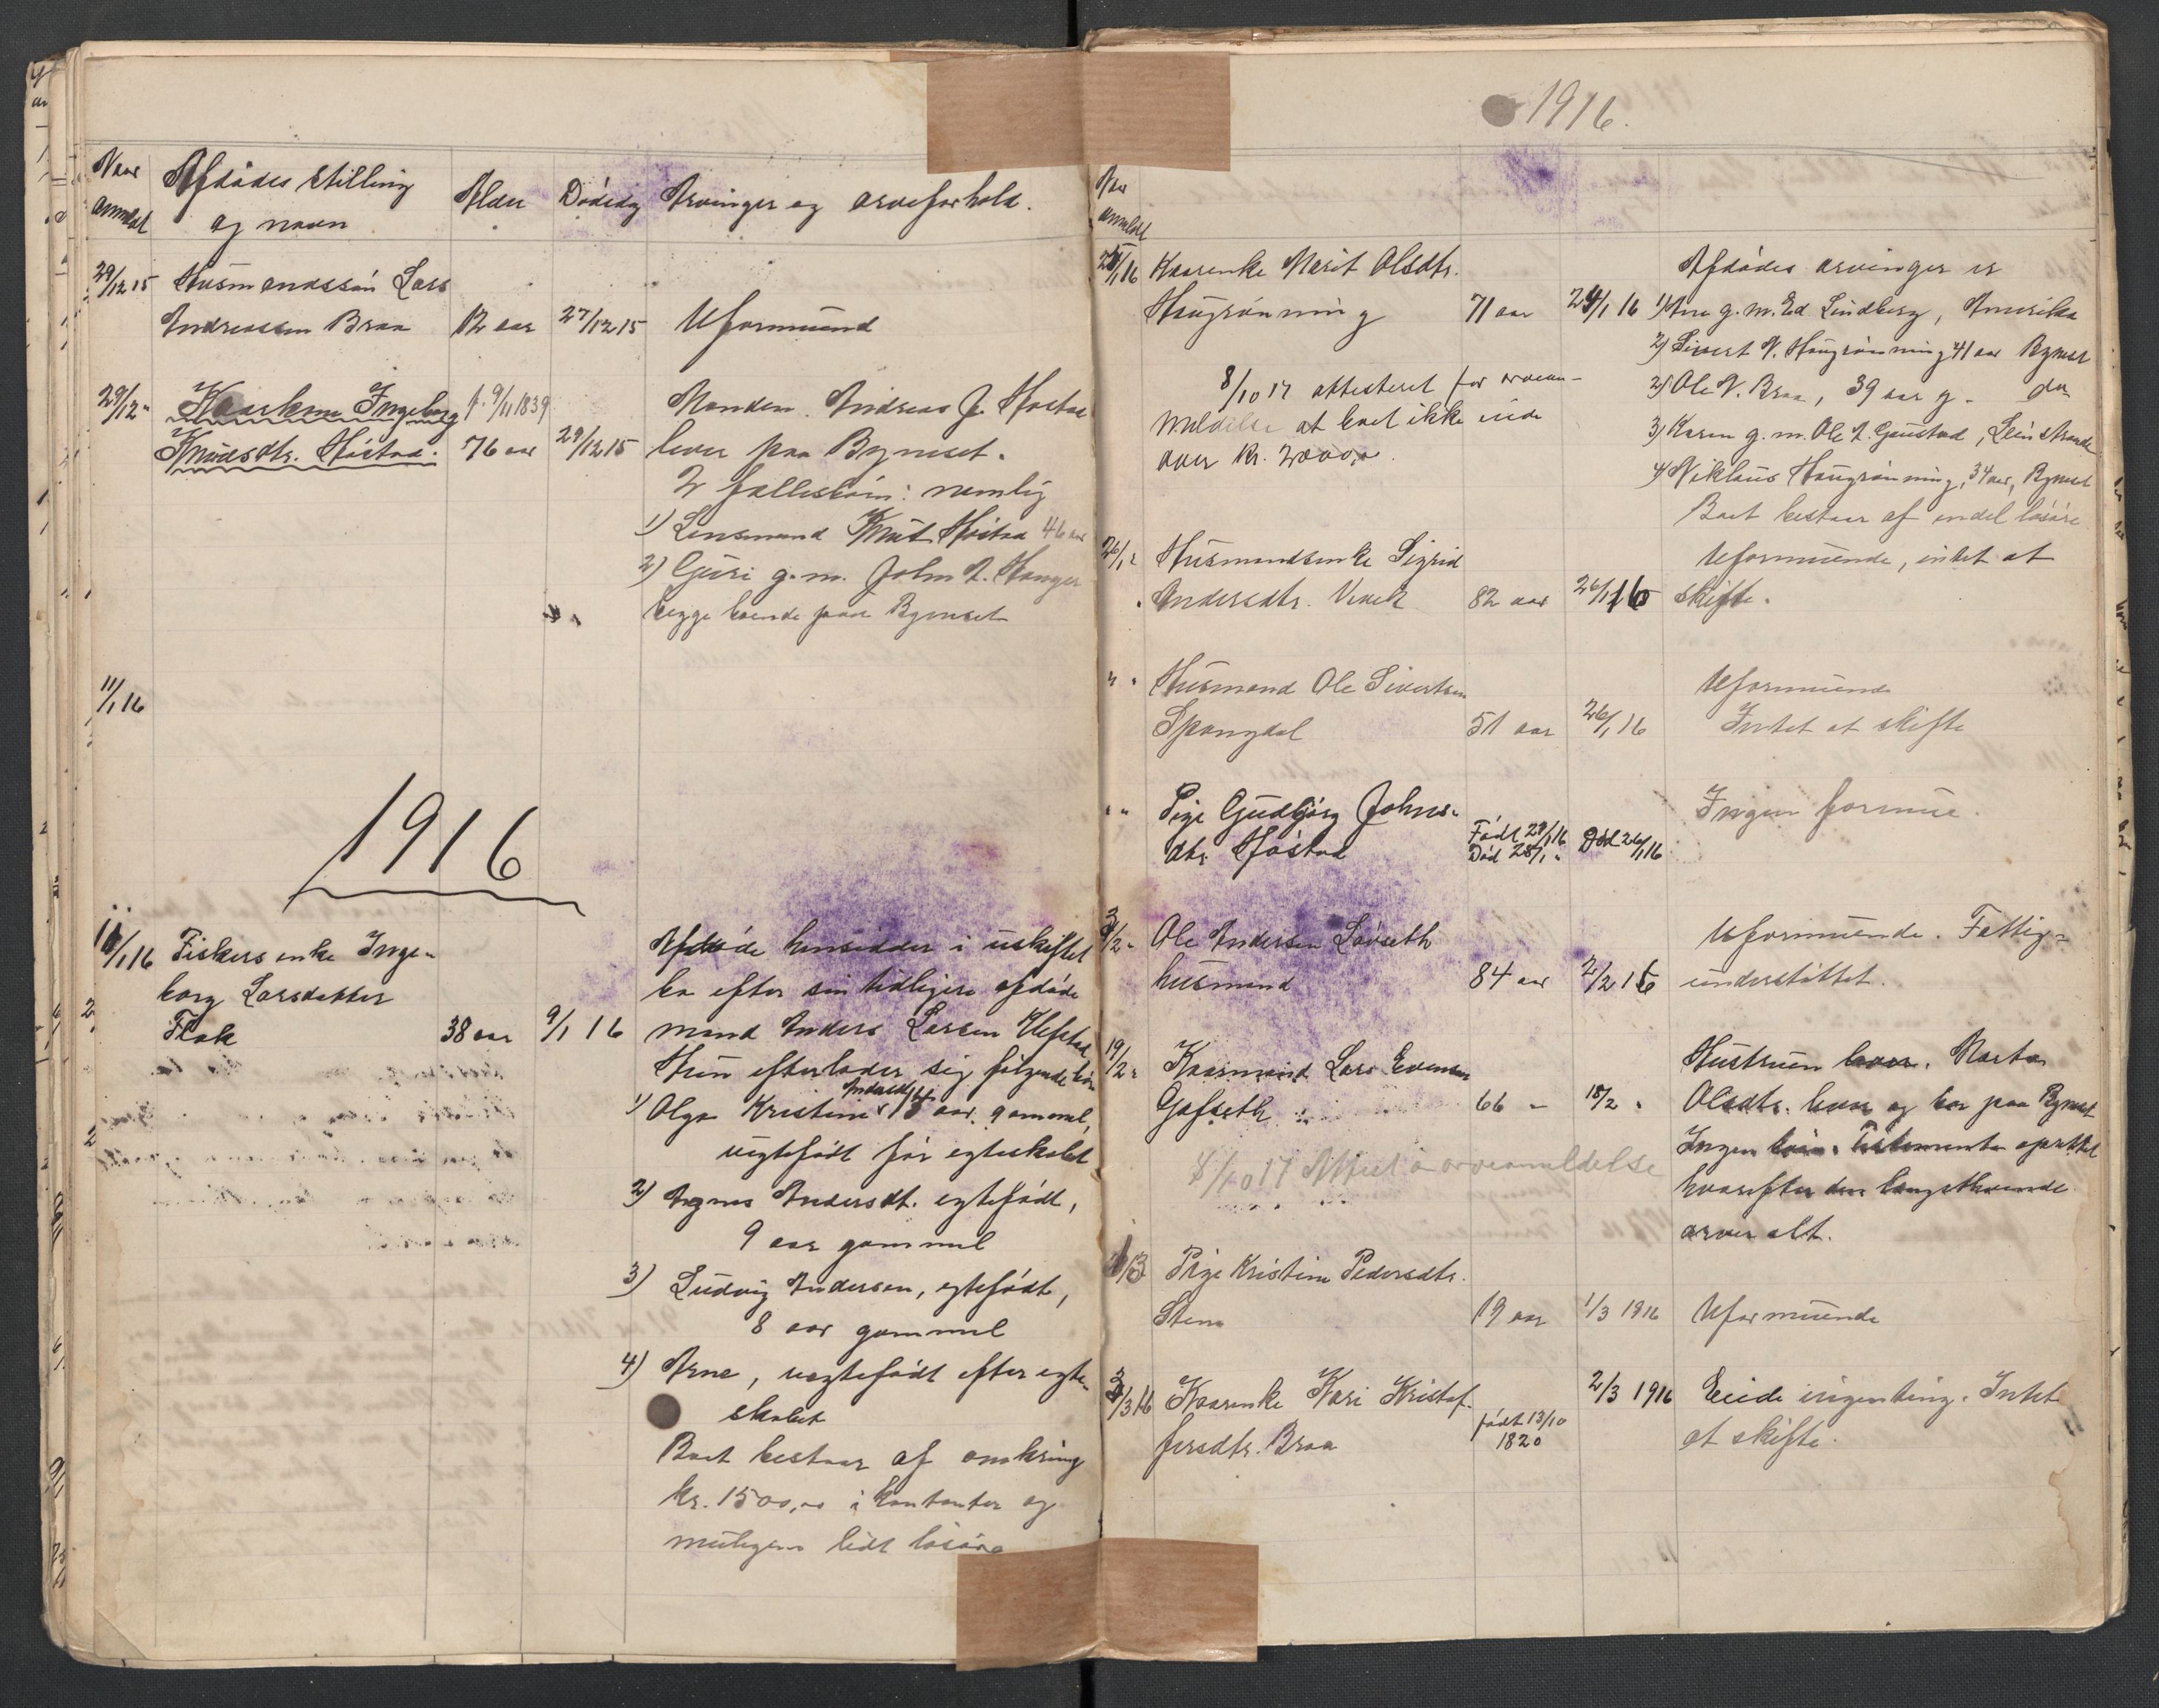 Naar anmeldt
Afdødes stilling og navn
Alder
Dødsdag
Arvinger og arveforhold.
29/12 15 Husmandssøn Lars
Andreassen Braa 12 aar 27/12 15 Uformuend
29/12 " Kaarkone Ingeborg f. 9/11 1839 Manden Andreas J. Høstad
Knudsdtr. Høstad. 76 aar 29/12 15 lever paa Byneset.
2 fællesbørn: nemlig
1) Lensmand Knut Høstad 46 aar
2) Guri g. m. John L. Hangen
begge boende paa Byneset
11/1 16
1916
11/1 16 Fiskers enke Inge-
borg Larsdatter
Flak 38 aar 9/1 16
Afdøde hensidder i uskiftet
bo efter sin tidligere afdøde
mand Anders Larsen Klefstad
Hun efterlader sig følgende børn
1) Olga Kristine 15 aar gammel,
uegtefødt før egteskabet
2) Agnes Andersdt. egtefødt,
9 aar gammel
3) Ludvig Andersen, egtefødt,
8 aar gammel
4) Arne, uegtefødt efter egte-
skabet
Boet bestaar af omkring
kr. 1500,00 i kontanter og
muligens lidt løsøre
1916.
Naar anmeldt
1/16 Kaarenke Marit Olsdtr. Afdødes arvinger er
Haugrønning 71 aar 24/1 16 1) Ane g. m. Ed Lindberg, Amerika
2) Sivert N. Haugrønning 41 aar Bynes
2) Ole N. Braa, 39 aar g. do
3) Karen g. m. Ole L. Gaustad, Leinstrande
4) Niklaus Haugrønning, 34 aar, Byneset
Boet bestaar af endel løsøre
8/10 17 attesteret for arvean-
meldelse at boet ikke eide
over kr. 2000,00.
26/1 " Husmandsenke Sigrid Uformuende, intet at
Andersdtr. 82 aar 26/1 16 skifte.
" " Husmand Ole Sivertsen Uformuende
Spongdal 51 aar 26/1 16 Intet at skifte
" " Pige Gudbjørg Johns- Ingen formue.
dtr Høstad Født 29/1 16 Død 26/1 16
Død 28/1 "
3/2 " Ole Andersen Løvseth Uformuende. Fattig-
husmand 84 aar 2/2 16 understøttet.
19/2 " Kaarmand Lars Evensen Hustruen lever. Marta
Gafseth 66 " 18/2 " Olsdtr. lever og bor paa Byneset
Ingen børn. Testamente oprettet
hvorefter den længstlevende
arver alt.
8/10 17 Attest arveanmeldelse
1/3 Pige Kristine Pedersdtr.
Stene 19 aar 1/3 1916 Uformuende
3/3 16 Kaarenke Kari Kristof- 2/3 1916 Eiede ingenting. Intet
fersdtr. Braa født 13/10 1820 at skifte.